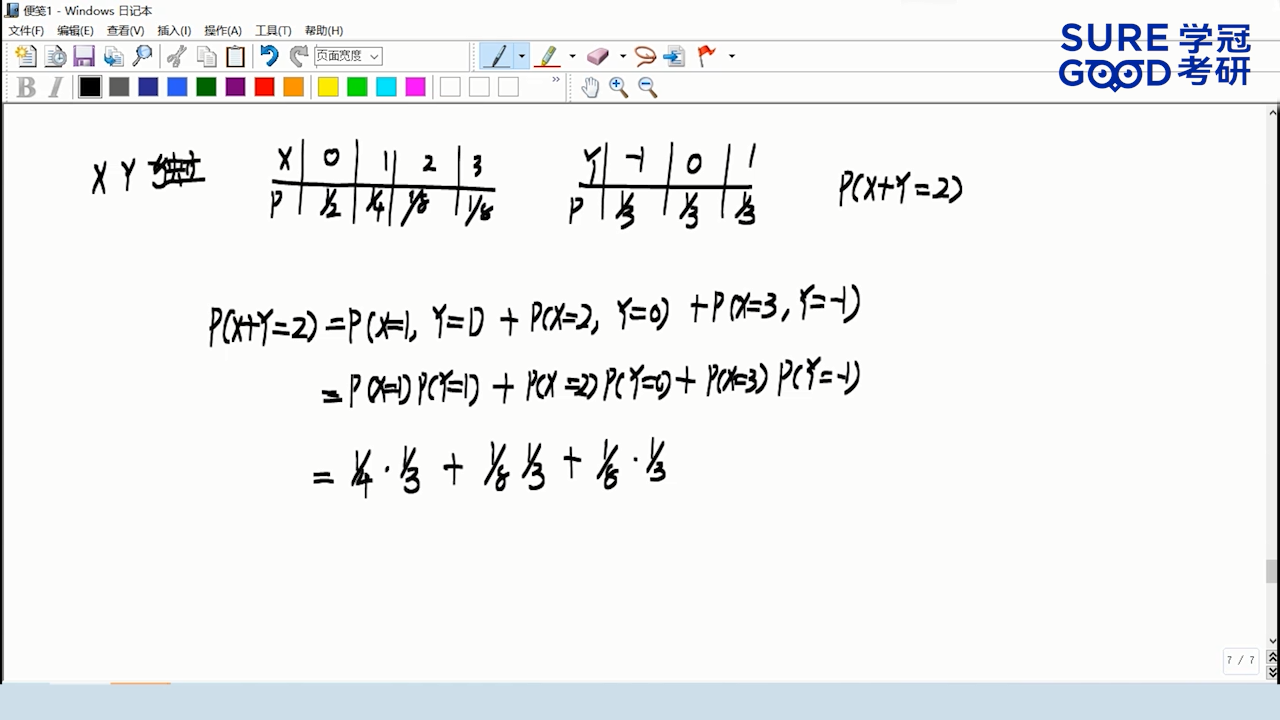 便笺1 - Windows 日记本
文件(F) 编辑(E) 查看(V) 插入(I) 操作(A) 工具(T) 帮助(H)
页面宽度
B I
SURE 学冠
GOOD 考研
X Y
X 0 1 2 3
P 1/2 1/4 1/8 1/8
Y -1 0 1
P 1/3 1/3 1/3
P(X+Y=2)
P(X+Y=2) = P(X=1, Y=1) + P(X=2, Y=0) + P(X=3, Y=-1)
= P(X=1) P(Y=1) + P(X=2) P(Y=0) + P(X=3) P(Y=-1)
= 1/4 · 1/3 + 1/8 1/3 + 1/8 · 1/3
7 / 7